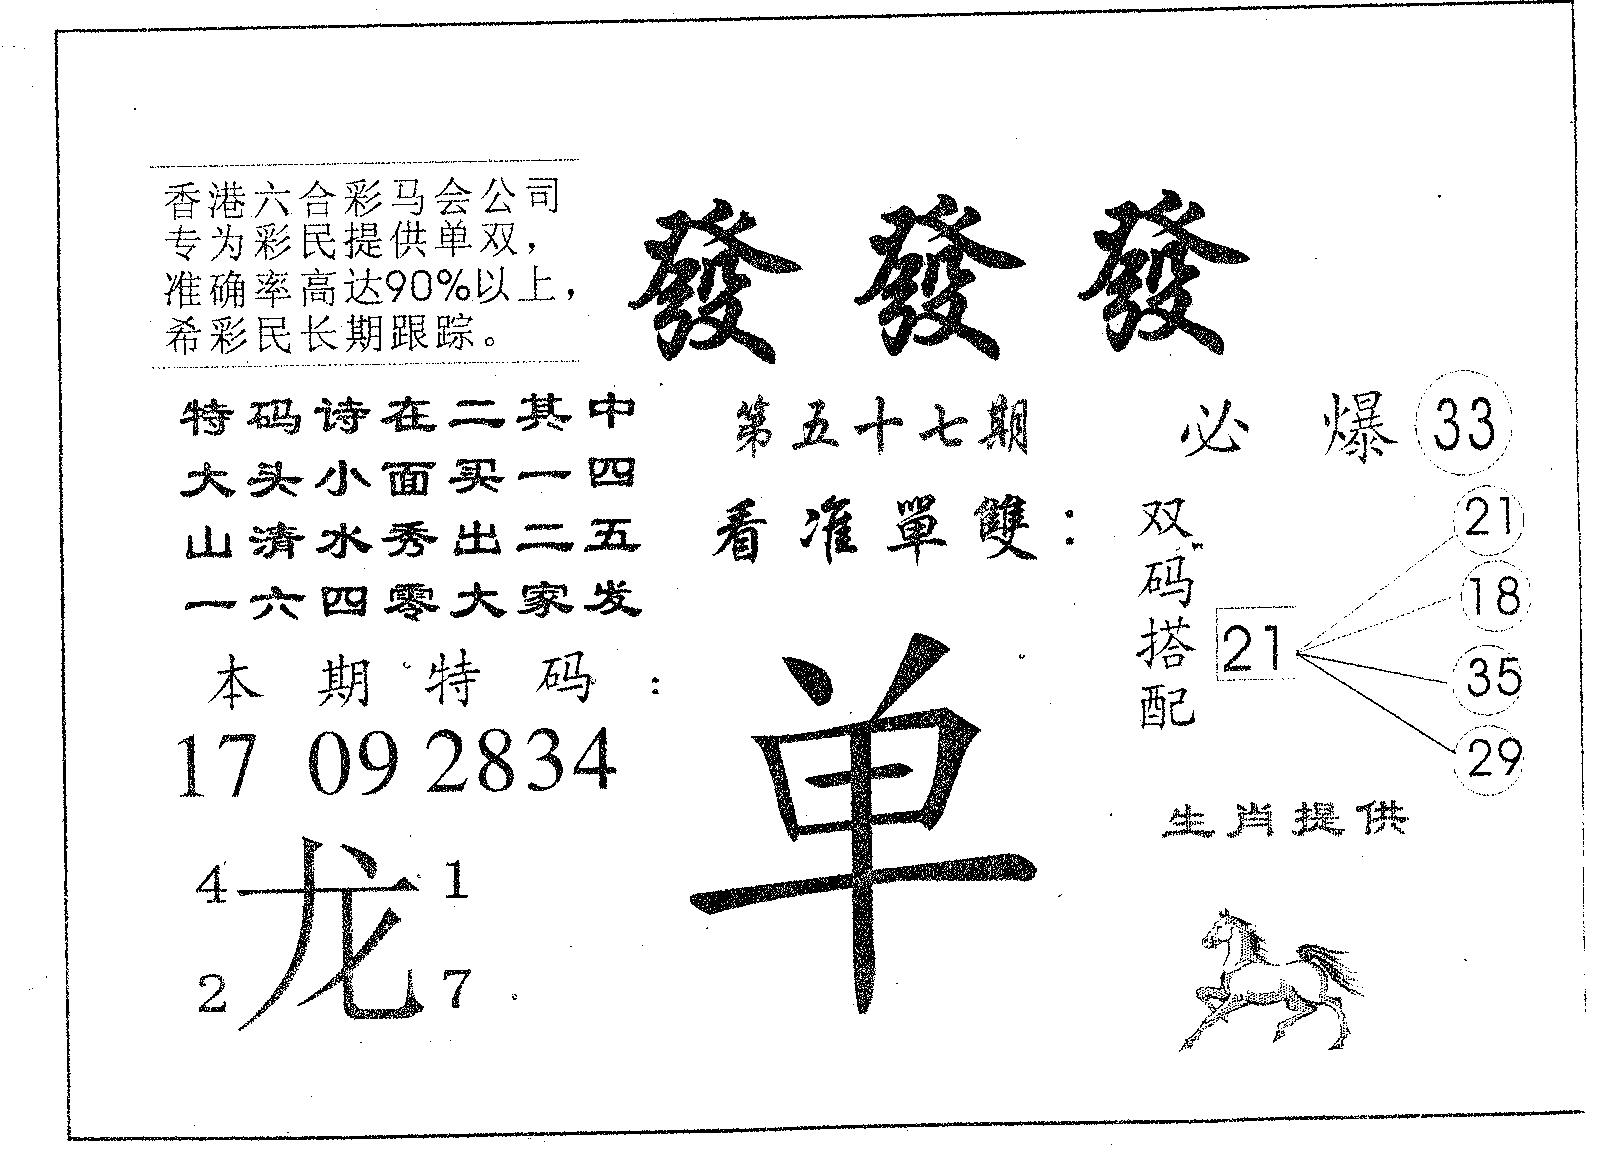 香港六合彩马会公司
专为彩民提供单双，
准确率高达90%以上，
希彩民长期跟踪。
發發發
特码诗在二其中
大头小面买一四
山清水秀出二五
一六四零大家发
第五十七期
必爆33
看准單雙：
双码搭配
21
21
18
35
29
本期特码：
17 09 2834
单
生肖提供
4 1
龙
2 7